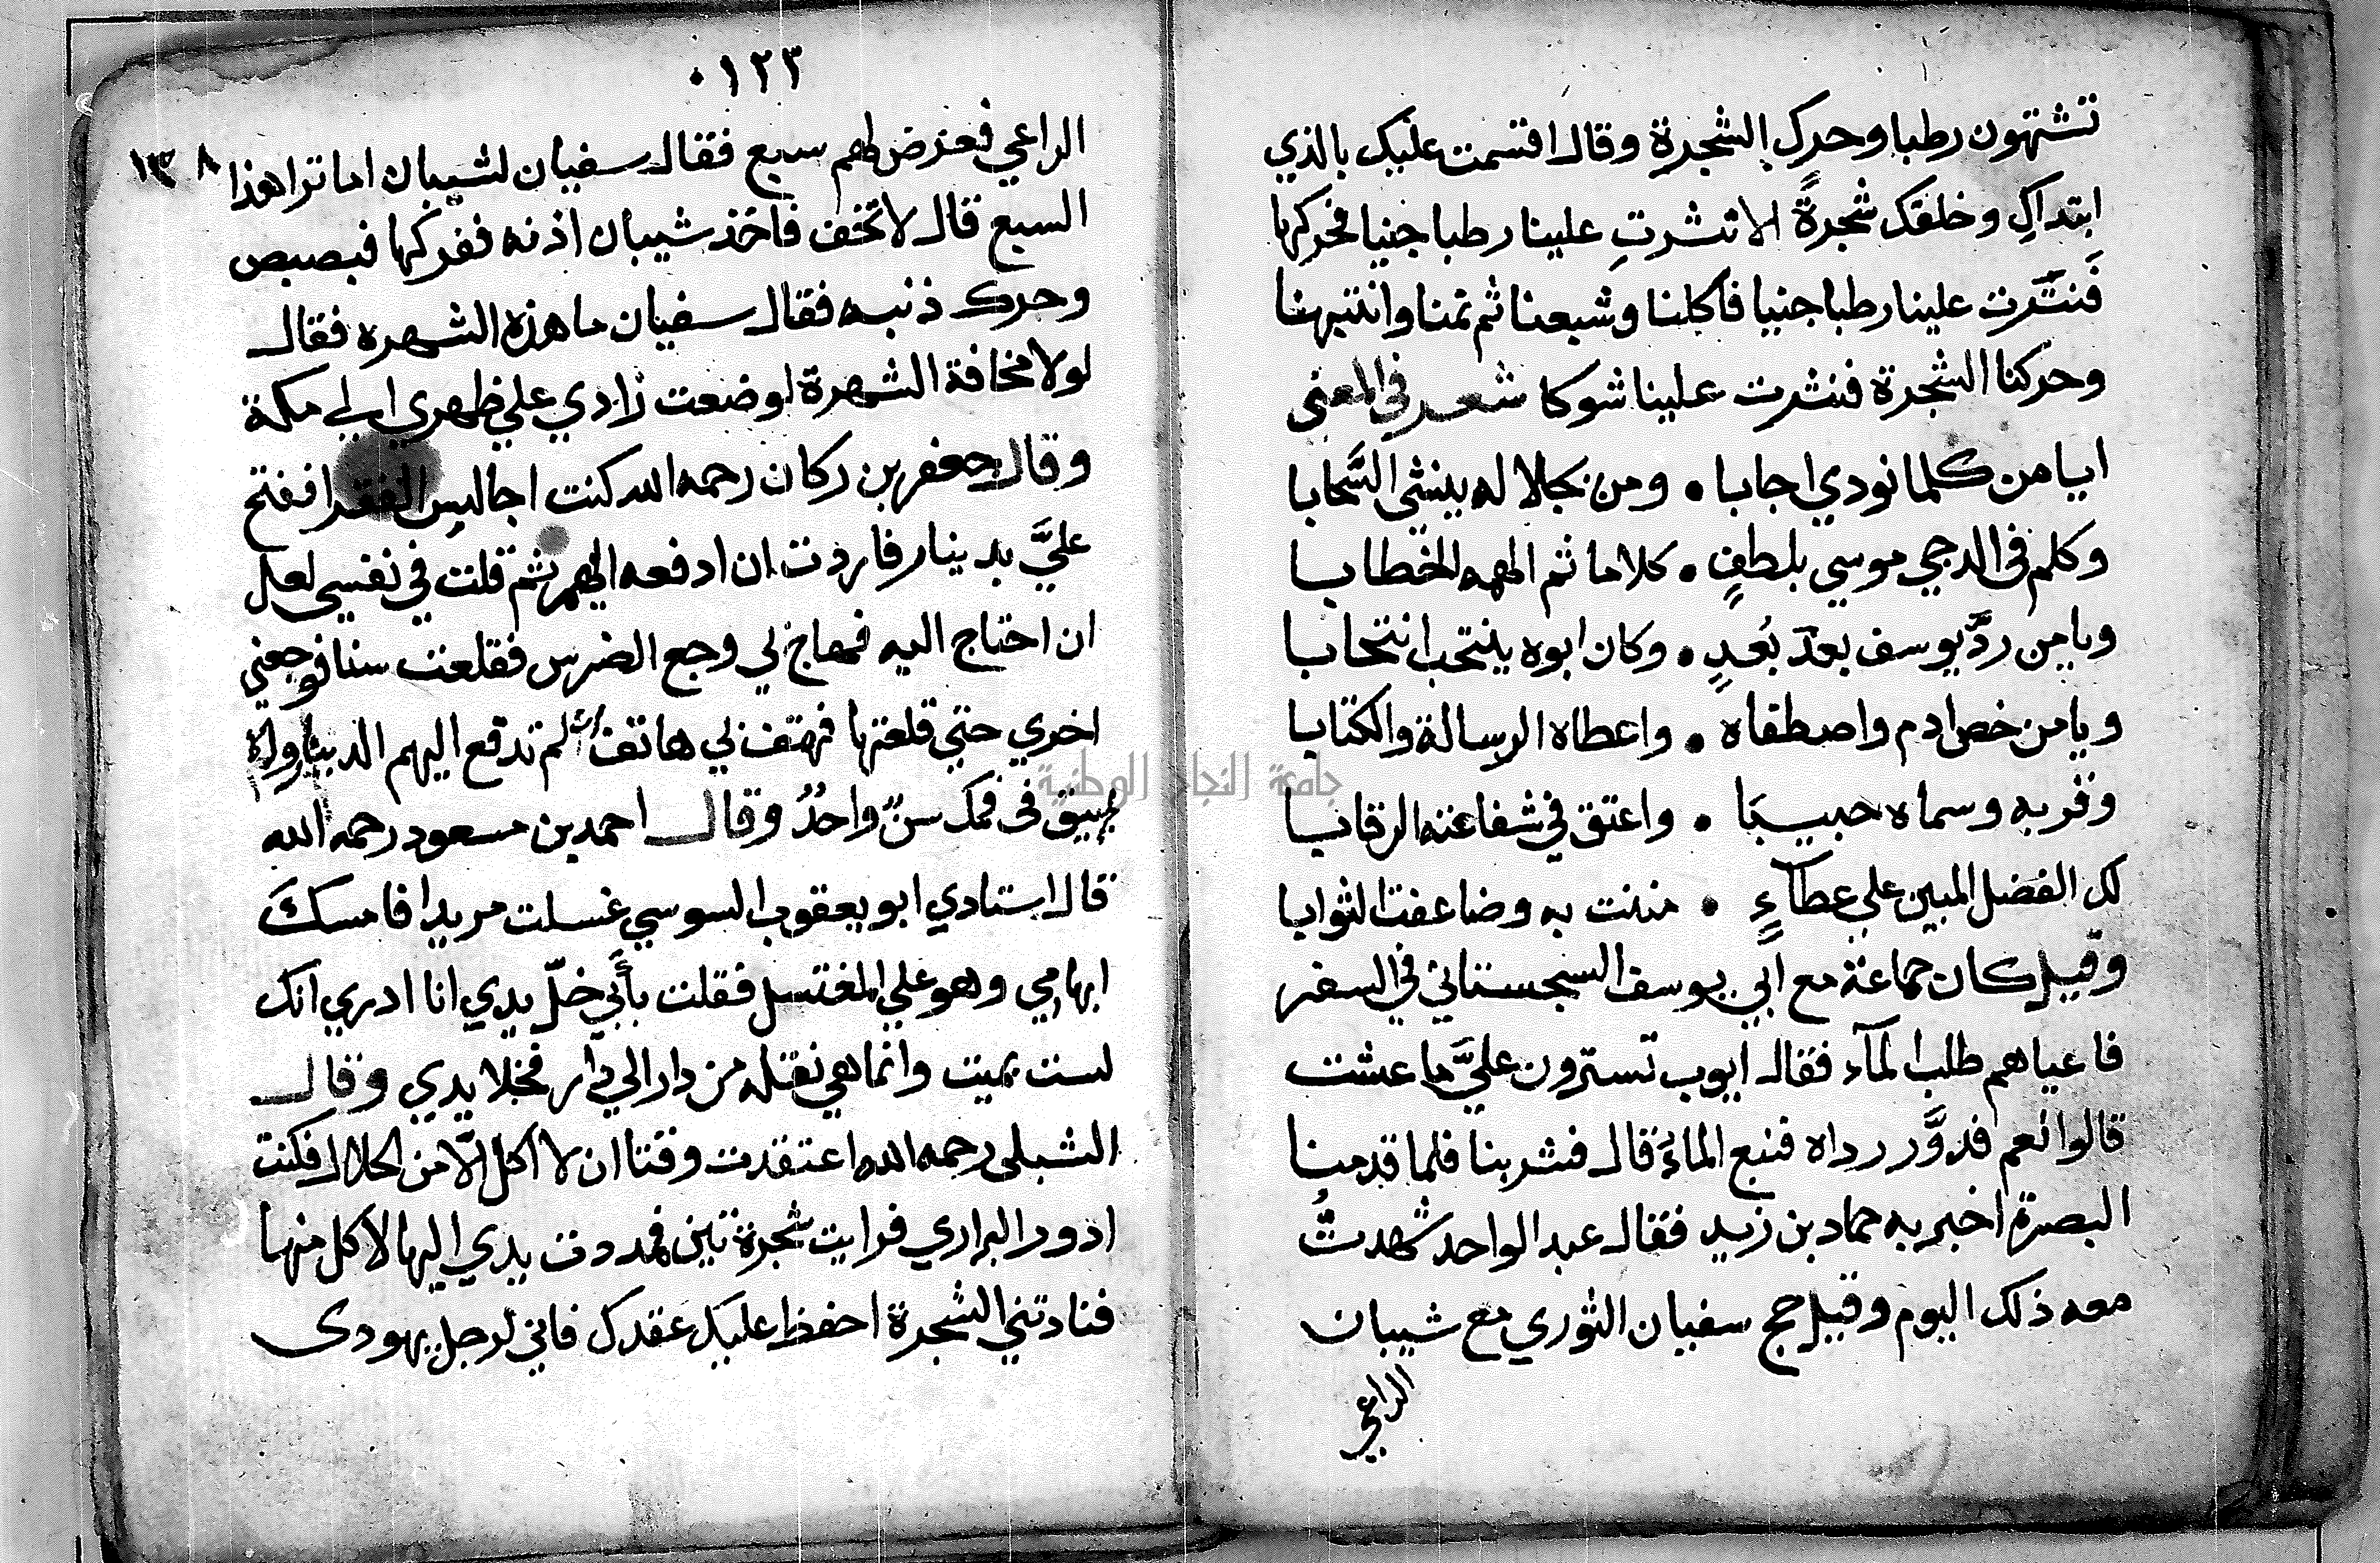 تشتهون رطبا وحرك الشجرة وقال اقسمت عليك بالذي
ابتداكِ وخلقك شجرةً الا نثرتِ علينا رطبا جنيا فحركها
فَنثَرت علينا رطبا جنيا فاكلنا وشبعنا ثم نمنا وانتبهنا
وحركنا الشجرة فنثرت علينا شوكا شعر في المعنى
ايا من كلما نودي اجابا • ومن بجلاله ينشي السَّحابا
وكلم في الدجي موسي بلطفٍ • كلاما ثم الهمه الخطابا
ويا من ردَّ يوسف بعدَ بُعدٍ • وكان ابوه ينتحب انتحابا
ويا من خص ادم واصطفاه • واعطاه الرسالة والكتابا
وقربه وسماه حبيبَا • واعتق في شفاعته الرقابا
لك الفضل المبين علي عطآءٍ • مننت به وضاعفت الثوابا
وقيل كان جماعة مع ابي يوسف السجستاني في السفر
فاعياهم طلب المآء فقال ايوب تسترون عليَّ ما عشت
قالوا نعم فدوَّر رداه فنبع الماءُ قال فشربنا فلما قدمنا
البصرة اخبر به حماد بن زيد فقال عبد الواحد شهدتُ
معه ذلك اليوم وقيل حج سفيان الثوري مع شيبان
الراعي
٠١٢٣
١٣٨
الراعي فعرض لهم سبع فقال سفيان لشيبان اما ترا هذا
السبع قال لا تخف فاخذ شيبان اذنه ففركها فبصبص
وحرك ذنبه فقال سفيان ما هزه الشهره فقال
لولا مخافة الشهرة لوضعت زادي علي ظهري الي مكة
وقال جعفر بن ركان رحمه الله كنت اجالس الفقرا ففتح
عليَّ بدينار فاردت ان ادفعه اليهم ثم قلت في نفسي لعل
ان احتاج اليه فهاج لي وجع الضرس فقلعت سنا فوجعني
اخري حتي قلعتها فهتف لي هاتف ان لم تدفع اليهم الدينار ولا
يبيق في فمك سنٌ واحدٌ وقال احمد بن مسعود رحمه الله
قال استادي ابو يعقوب السوسي غسلت مريدا فامسكَ
ابهامي وهو علي المغتسل فقلت يأبَني خلّ يدي انا ادري انك
لست بميت وانما هي نقله من دار الي دار فخلا يدي وقال
الشبلي رحمه الله اعتقدت وقتا ان لا آكل الّا من الحلال فكنت
ادور البراري فرايت شجرة تين فمددت يدي اليها لآكل منها
فنادتني الشجرة احفظ عليك عقدك فاني لرجل يهودى
جامعة النجاح الوطنية